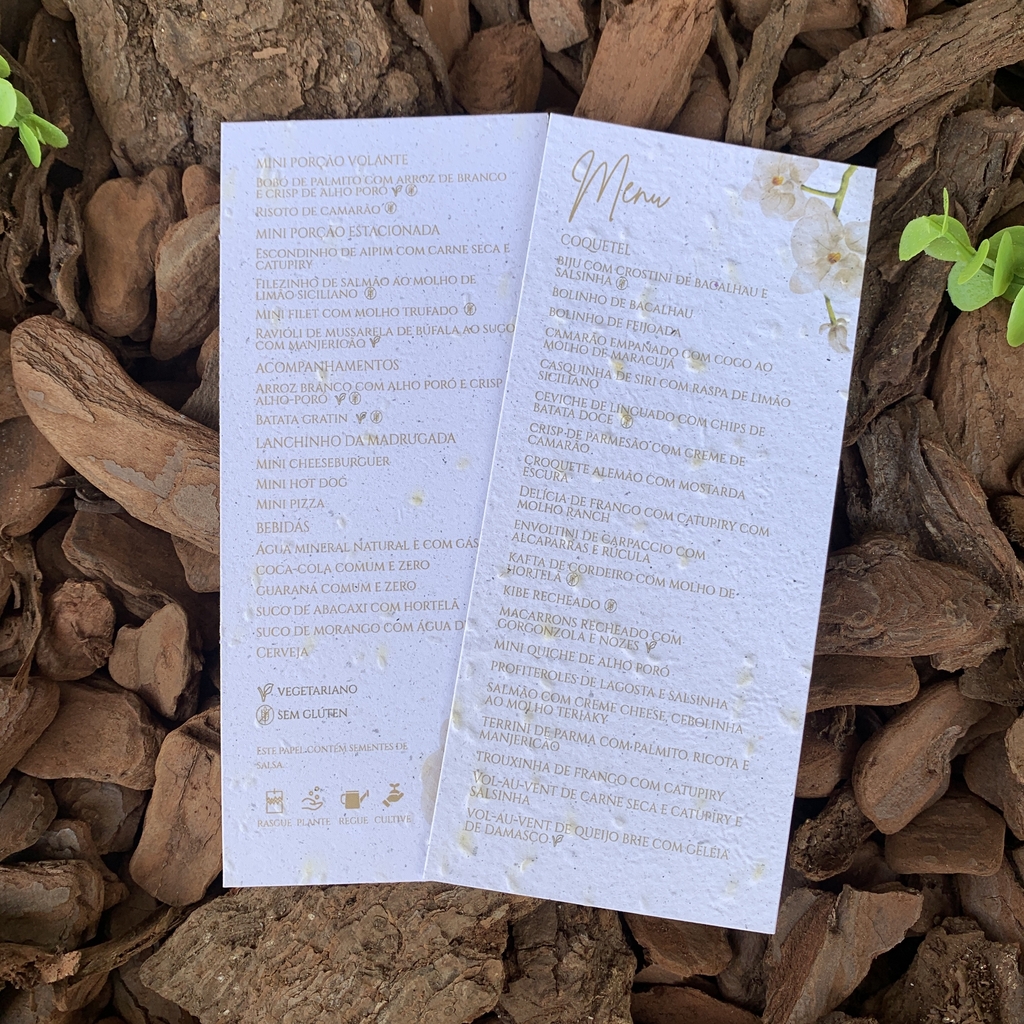 MINI PORÇÃO VOLANTE
BOBÓ DE PALMITO COM ARROZ DE BRANCO
E CRISP DE ALHO PORÓ
RISOTO DE CAMARÃO
MINI PORÇÃO ESTACIONADA
ESCONDINHO DE AIPIM COM CARNE SECA E
CATUPIRY
FILEZINHO DE SALMÃO AO MOLHO DE
LIMÃO SICILIANO
MINI FILET COM MOLHO TRUFADO
RAVIÓLI DE MUSSARELA DE BÚFALA AO SUGO
COM MANJERICÃO
ACOMPANHAMENTOS
ARROZ BRANCO COM ALHO PORÓ E CRISP
ALHO-PORÓ
BATATA GRATIN
LANCHINHO DA MADRUGADA
MINI CHEESEBURGUER
MINI HOT DOG
MINI PIZZA
BEBIDAS
ÁGUA MINERAL NATURAL E COM GÁS
COCA-COLA COMUM E ZERO
GUARANÁ COMUM E ZERO
SUCO DE ABACAXI COM HORTELÃ
SUCO DE MORANGO COM ÁGUA D
CERVEJA
VEGETARIANO
SEM GLÚTEN
ESTE PAPEL CONTÉM SEMENTES DE
SALSA.
RASGUE PLANTE REGUE CULTIVE
Menu
COQUETEL
BIJU COM CROSTINI DE BACALHAU E
SALSINHA
BOLINHO DE BACALHAU
BOLINHO DE FEIJOADA
CAMARÃO EMPANADO COM COCO AO
MOLHO DE MARACUJÁ
CASQUINHA DE SIRI COM RASPA DE LIMÃO
SICILIANO
CEVICHE DE LINGUADO COM CHIPS DE
BATATA DOCE
CRISP DE PARMESÃO COM CREME DE
CAMARÃO
CROQUETE ALEMÃO COM MOSTARDA
ESCURA
DELÍCIA DE FRANGO COM CATUPIRY COM
MOLHO RANCH
ENVOLTINI DE CARPACCIO COM
ALCAPARRAS E RÚCULA
KAFTA DE CORDEIRO COM MOLHO DE
HORTELÃ
KIBE RECHEADO
MACARRONS RECHEADO COM
GORGONZOLA E NOZES
MINI QUICHE DE ALHO PORÓ
PROFITEROLES DE LAGOSTA E SALSINHA
SALMÃO COM CREME CHEESE, CEBOLINHA
AO MOLHO TERIAKY
TERRINI DE PARMA COM PALMITO, RICOTA E
MANJERICÃO
TROUXINHA DE FRANGO COM CATUPIRY
VOL-AU-VENT DE CARNE SECA E CATUPIRY E
SALSINHA
VOL-AU-VENT DE QUEIJO BRIE COM GELÉIA
DE DAMASCO